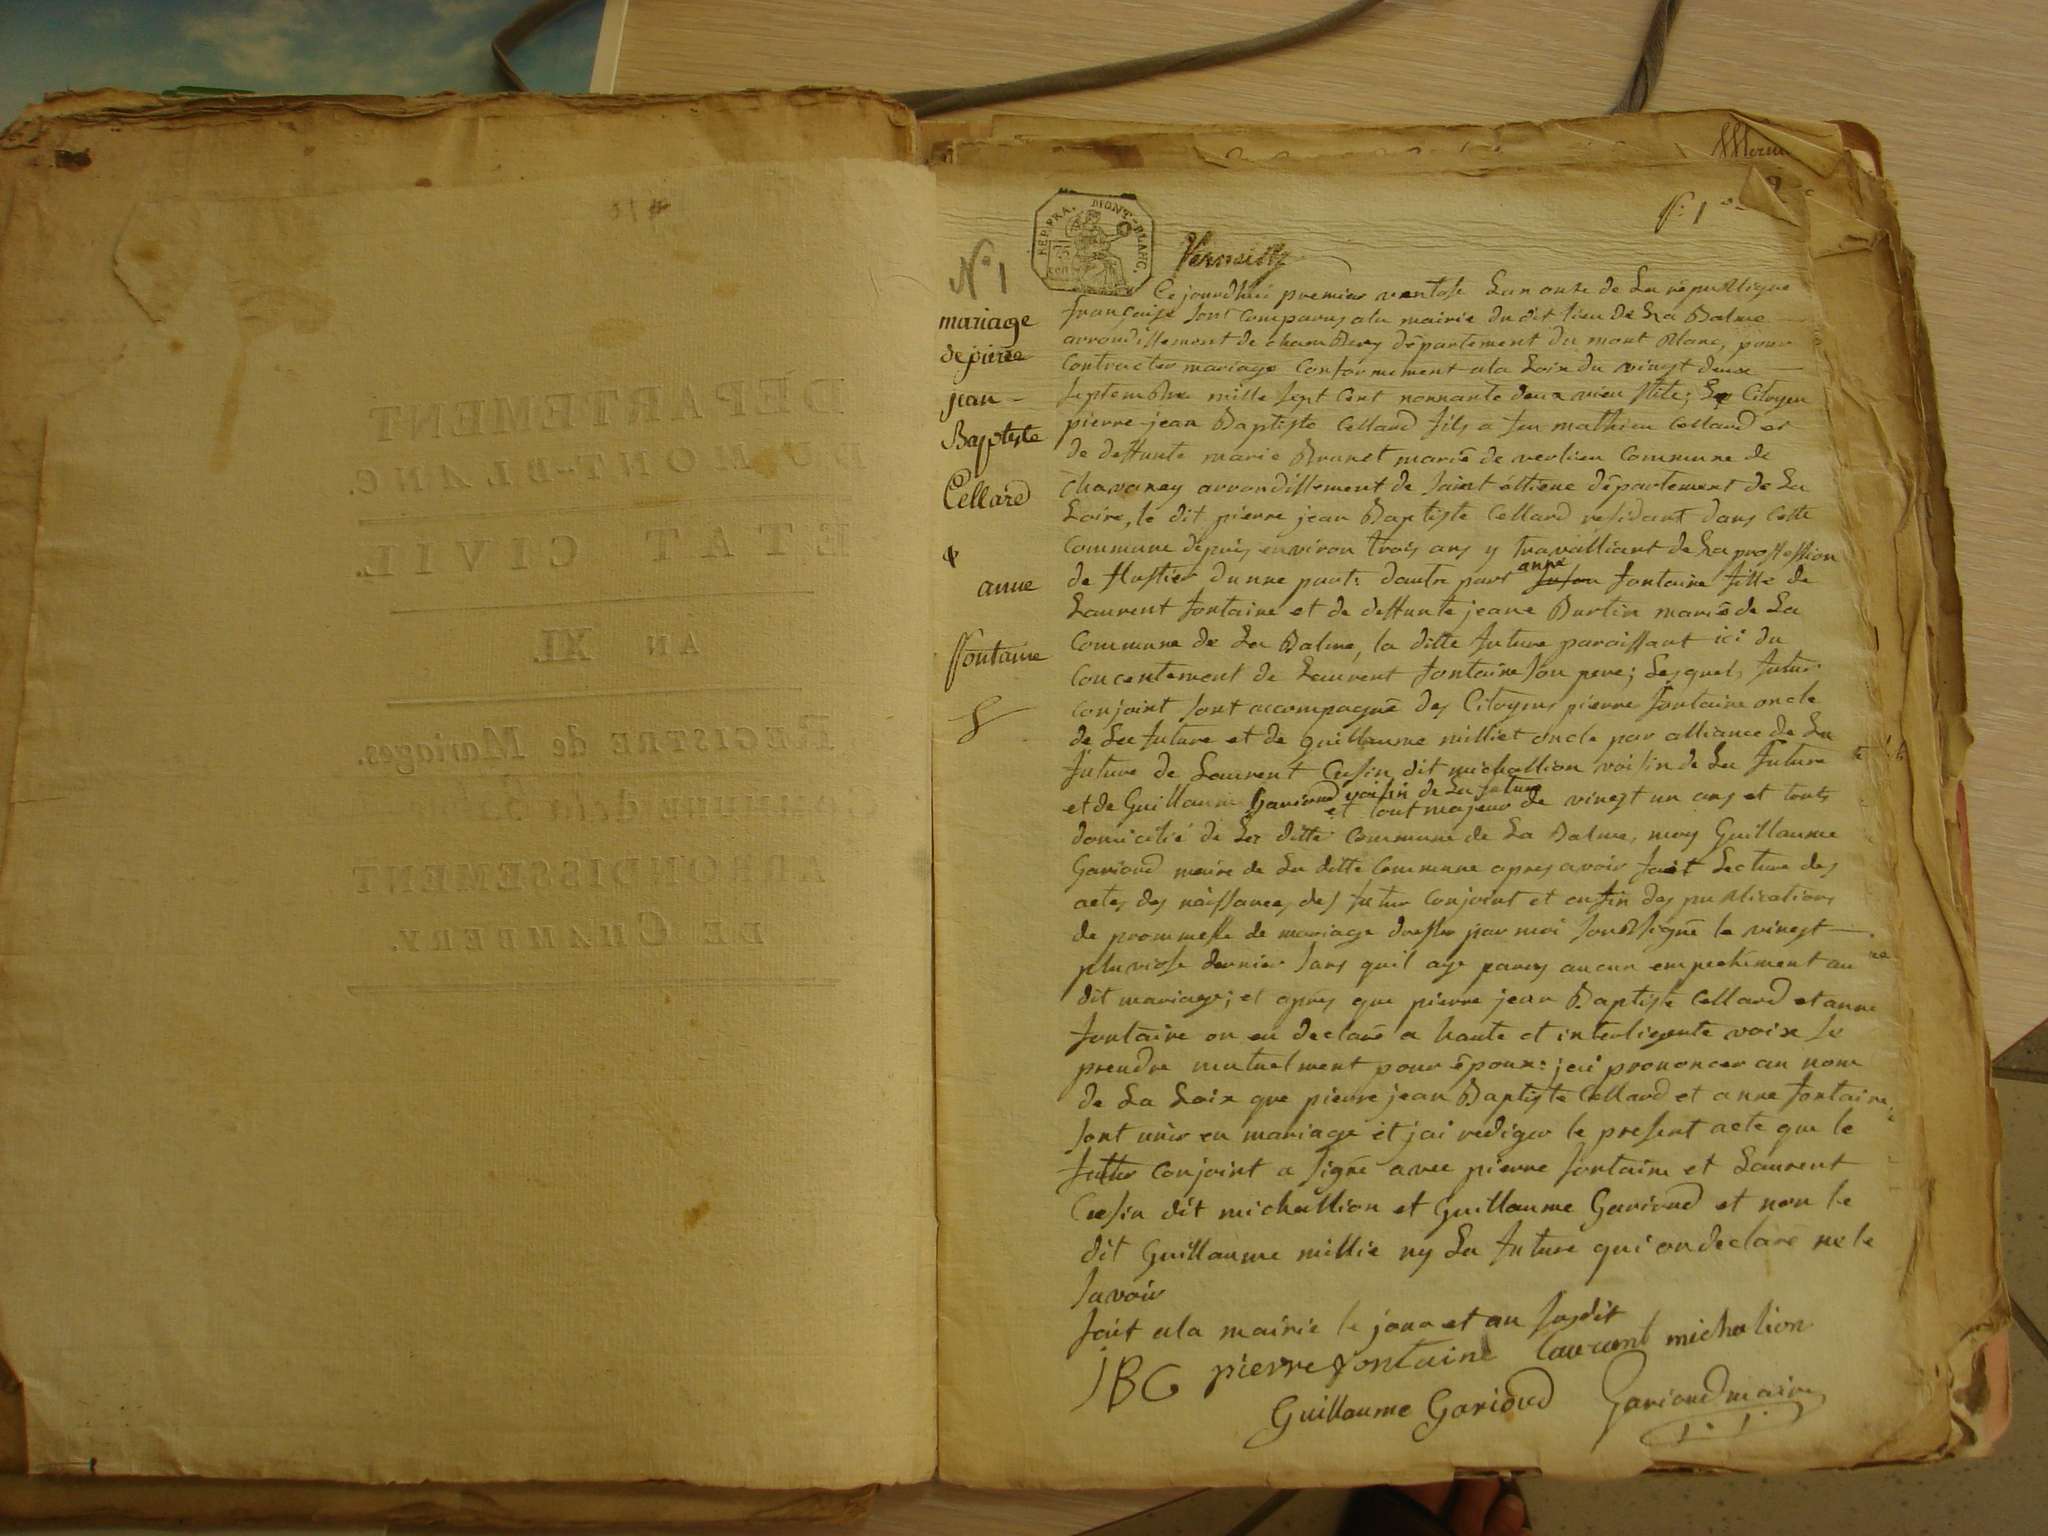 DEPARTEMENT
DU MONT-BLANC.
ETAT CIVIL.
AN XI.
REGISTRE de Mariages.
ARRONDISSEMENT
DE CHAMBERY.
N° 1
REP. FRA. MONT-BLANC.
mariage
de pierre
jean
Baptiste
Cellard
&
anne
ffontaine
Ce jourdhui premier ventose Lan onze de La republique
françoise sont comparus a la mairie du dit lieu de La Balme
arrondissement de chambery département du mont Blanc, pour
contracter mariage conformement a la Loix du vingt deux
septembre mille sept cent nonnante deux vieu stile; Le Citoyen
pierre jean Baptiste Cellard fils a feu mathieu Cellard et
de deffunte marie Brunet marié de verlieu Commune de
Chavanay arrondissement de saint étiene département de La
Loire, le dit pierre jean Baptiste Cellard residant dans cette
Commune depuis environ trois ans y travailliant de La proffession
de dunne part: dautre part anne fontaine fille de
Laurent fontaine et de deffunte jeane Burtin mariés de La
Commune de La Balme, la ditte future paroissant ici du
concentement de Laurent fontaine son pere; Lesquels futur
conjoint sont accompagné des Citoyens pierre fontaine oncle
de La future et de guillaume milliet oncle par alliance de La
future de Laurent Cusin dit michallion voisin de La future
et de Guillaume Garioud voisin de La future et tout majeur de vingt un ans et touts
domicilié de La ditte commune de La Balme, moy Guillaume
Garioud maire de La ditte Commune apres avoir fait Lecture des
actes des naissances des futur conjoint et enfin des publications
de prommesse de mariage dresser par moi soubsigné le vingt
pluviose dernier sans quil aye parus aucun empechement au
dit mariage; et après que pierre jean Baptiste Cellard et anne
fontaine on en declaré a haute et interligente voix se
prendre mutuelment pour époux: jai prononcer au nom
de La Loix que pierre jean Baptiste Cellard et anne fontaine
sont unis en mariage et jai rediger le present acte que le
futur conjoint a signé avec pierre fontaine et Laurent
Cusin dit michallion et Guillaume Garioud et non le
dit Guillaume millie ny La future qui on declaré ne le
savoir
fait a la mairie le jour et an susdit
JBC pierre fontaine laurent michalion
Guillaume Gorioud Garioud maire